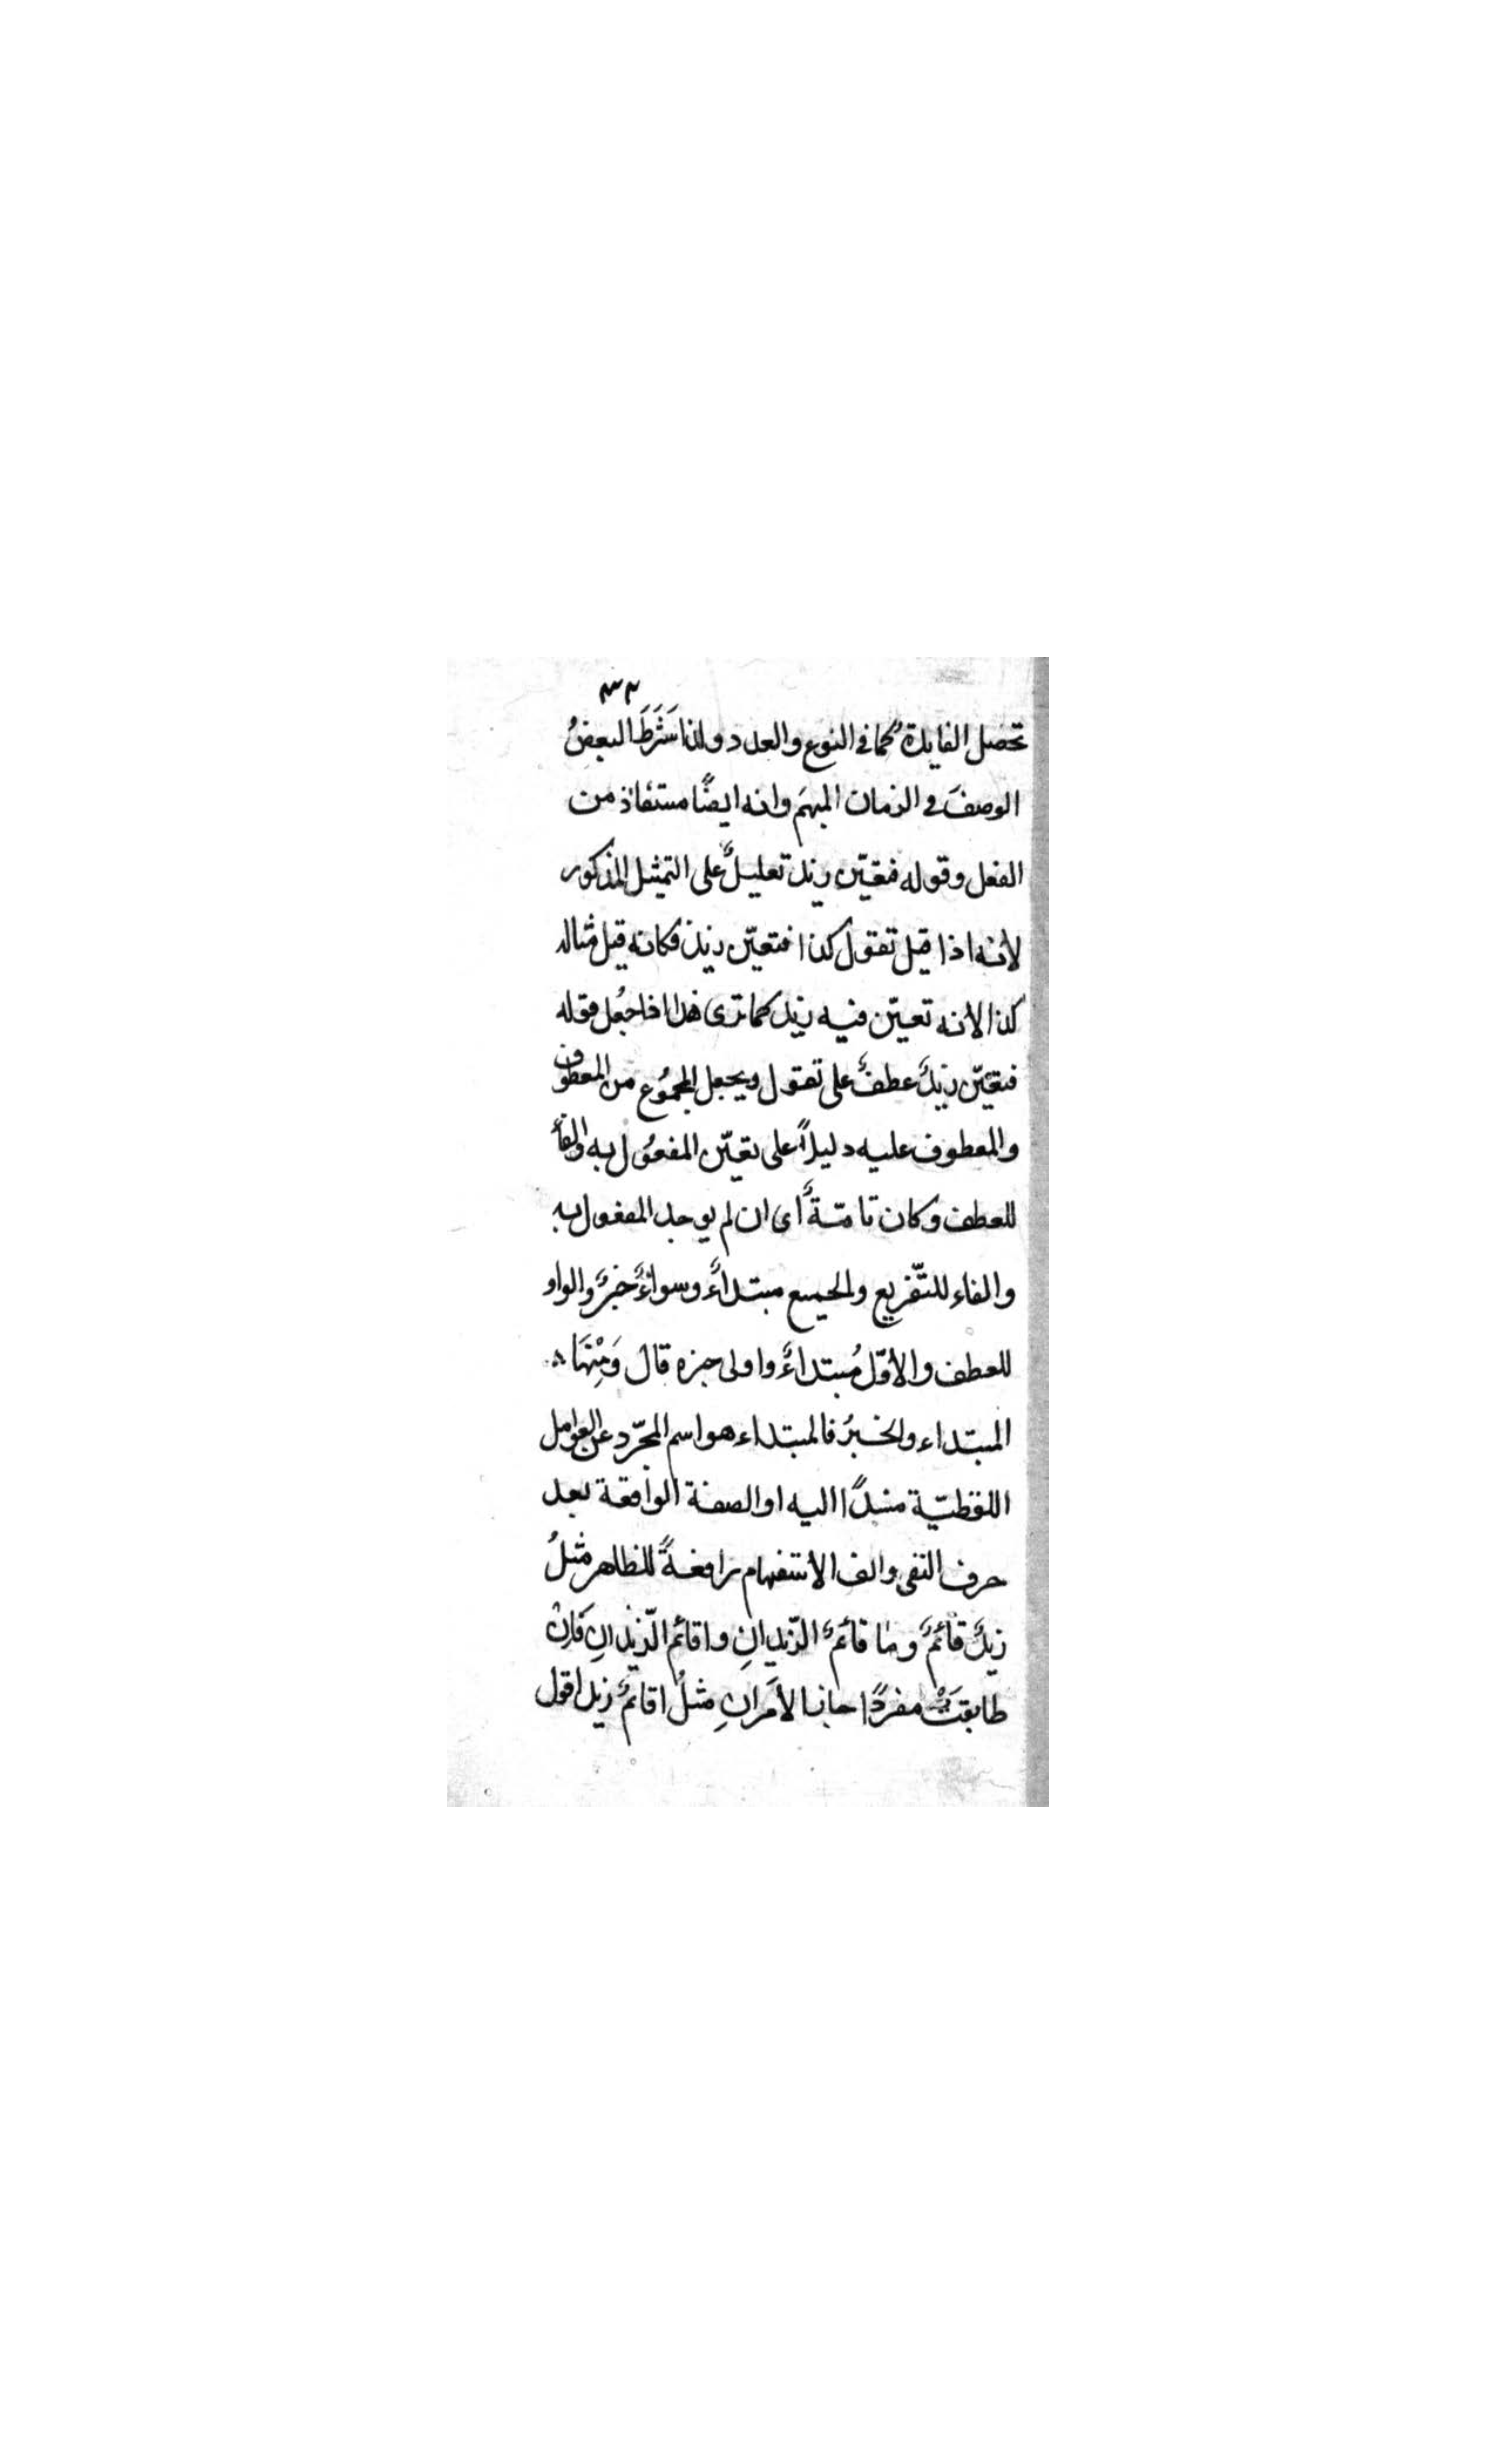 ٣٢
تحصل الفايدةُ كما فى النوع والعدد ولذا شَرَطَ البعضُ
الوصفَ فى الزمان المبهَم وانه ايضًا مستفاد من
الفعل وقوله فتعيّن زيد تعليلٌ على التمثيل المذكور
لأنه اذا قيل تقول كذا فتعيّن زيد فكانه قيل مثاله
كذا لأنه تعيّن فيه زيد كما ترى هذا اذا جُعل قوله
فتعيّن زيدٌ عطفٌ على تقول ويجعل المجموُع من المعطوف
والمعطوف عليه دليلاً على تعيّن المفعُول به والفأ
للعطف وكان تامّـةٌ أى ان لم يوجد المفعول به
والفاء للتّفريع والجميع مبتداءٌ وسواءٌ خبرٌ والواو
للعطف والأوّل مُبتداءٌ واولى خبره قال وَمِنْهَا
المبتداء والخبرُ فالمبتداء هو اسم المجرّد عن العوامل
اللفظيّة مسندًا اليه او الصفة الواقعة بعد
حرف النفى والف الأستفهام رافعةً للظاهر مثلُ
زيدٌ قائمٌ وما قائمٌ الزّيدانِ واقائم الزّيدانِ فَاِنْ
طابقَتْ مفردًا جاز الأمَرانِ مثلُ اقائمٌ زيد اقول